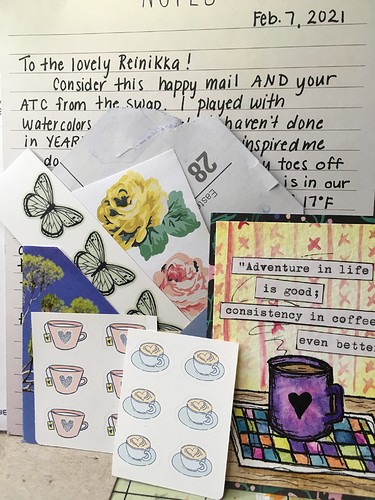 NOTES
Feb. 7, 2021
To the lovely Reinikka!
Consider this happy mail AND your
ATC from the swap. I played with
watercolors haven't done
in YEAR inspired me
do toes off
is in our
17°F
28
"Adventure in life
is good;
consistency in coffee
even better